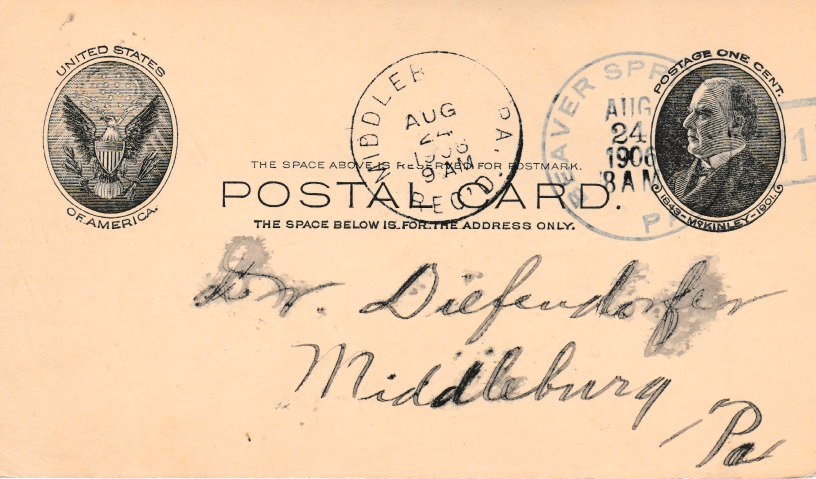 UNITED STATES
OF AMERICA.
MIDDLEB PA.
AUG
24
1906
9 AM
REC'D.
BEAVER SPR
AUG
24
1906
8 AM
PA
POSTAGE ONE CENT.
1843-McKINLEY-1901.
1
THE SPACE ABOVE IS RESERVED FOR POSTMARK.
POSTAL CARD.
THE SPACE BELOW IS FOR THE ADDRESS ONLY.
Dr. Diefendorfer
Middleburg
Pa